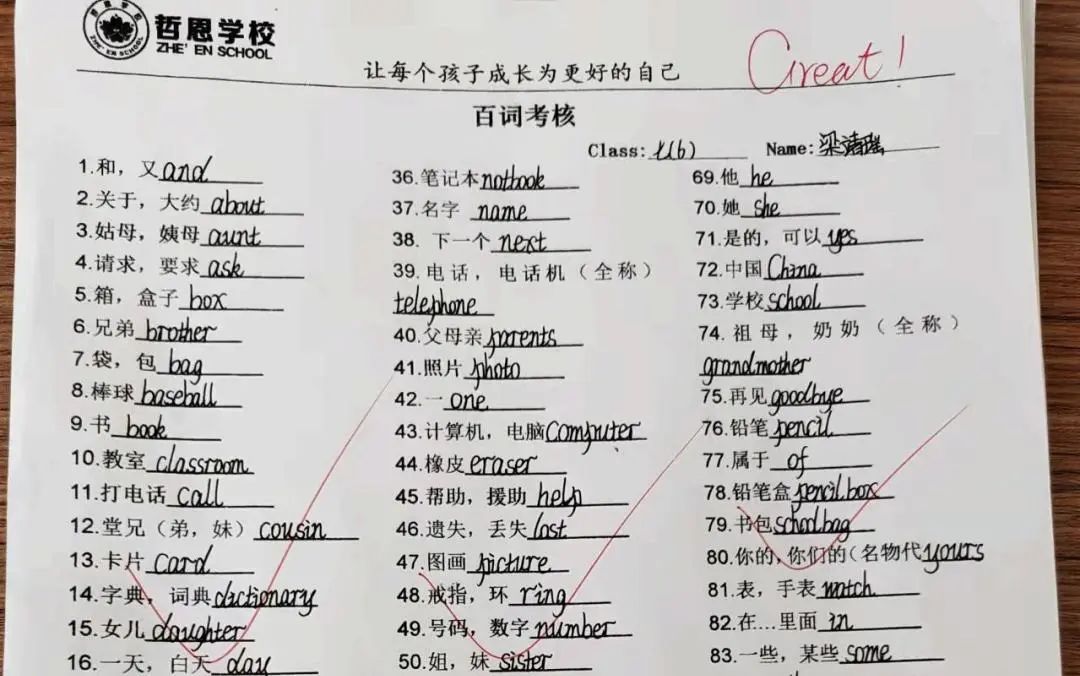 哲恩学校
ZHE' EN SCHOOL
让每个孩子成长为更好的自己
Great!
百词考核
Class: 七(6) Name: 梁清瑶
1.和，又 and
2.关于，大约 about
3.姑母，姨母 aunt
4.请求，要求 ask
5.箱，盒子 box
6.兄弟 brother
7.袋，包 bag
8.棒球 baseball
9.书 book
10.教室 classroom
11.打电话 call
12.堂兄（弟，妹）cousin
13.卡片 card
14.字典，词典 dictionary
15.女儿 daughter
16.一天，白天 day
36.笔记本 notbook
37.名字 name
38. 下一个 next
39.电话，电话机（全称）
telephone
40.父母亲 parents
41.照片 photo
42.一 one
43.计算机，电脑 computer
44.橡皮 eraser
45.帮助，援助 help
46.遗失，丢失 lost
47.图画 picture
48.戒指，环 ring
49.号码，数字 number
50.姐，妹 sister
69.他 he
70.她 she
71.是的，可以 yes
72.中国 China
73.学校 school
74.祖母，奶奶（全称）
grandmother
75.再见 goodbye
76.铅笔 pencil
77.属于 of
78.铅笔盒 pencil box
79.书包 schoolbag
80.你的，你们的（名物代 yours
81.表，手表 watch
82.在…里面 in
83.一些，某些 some